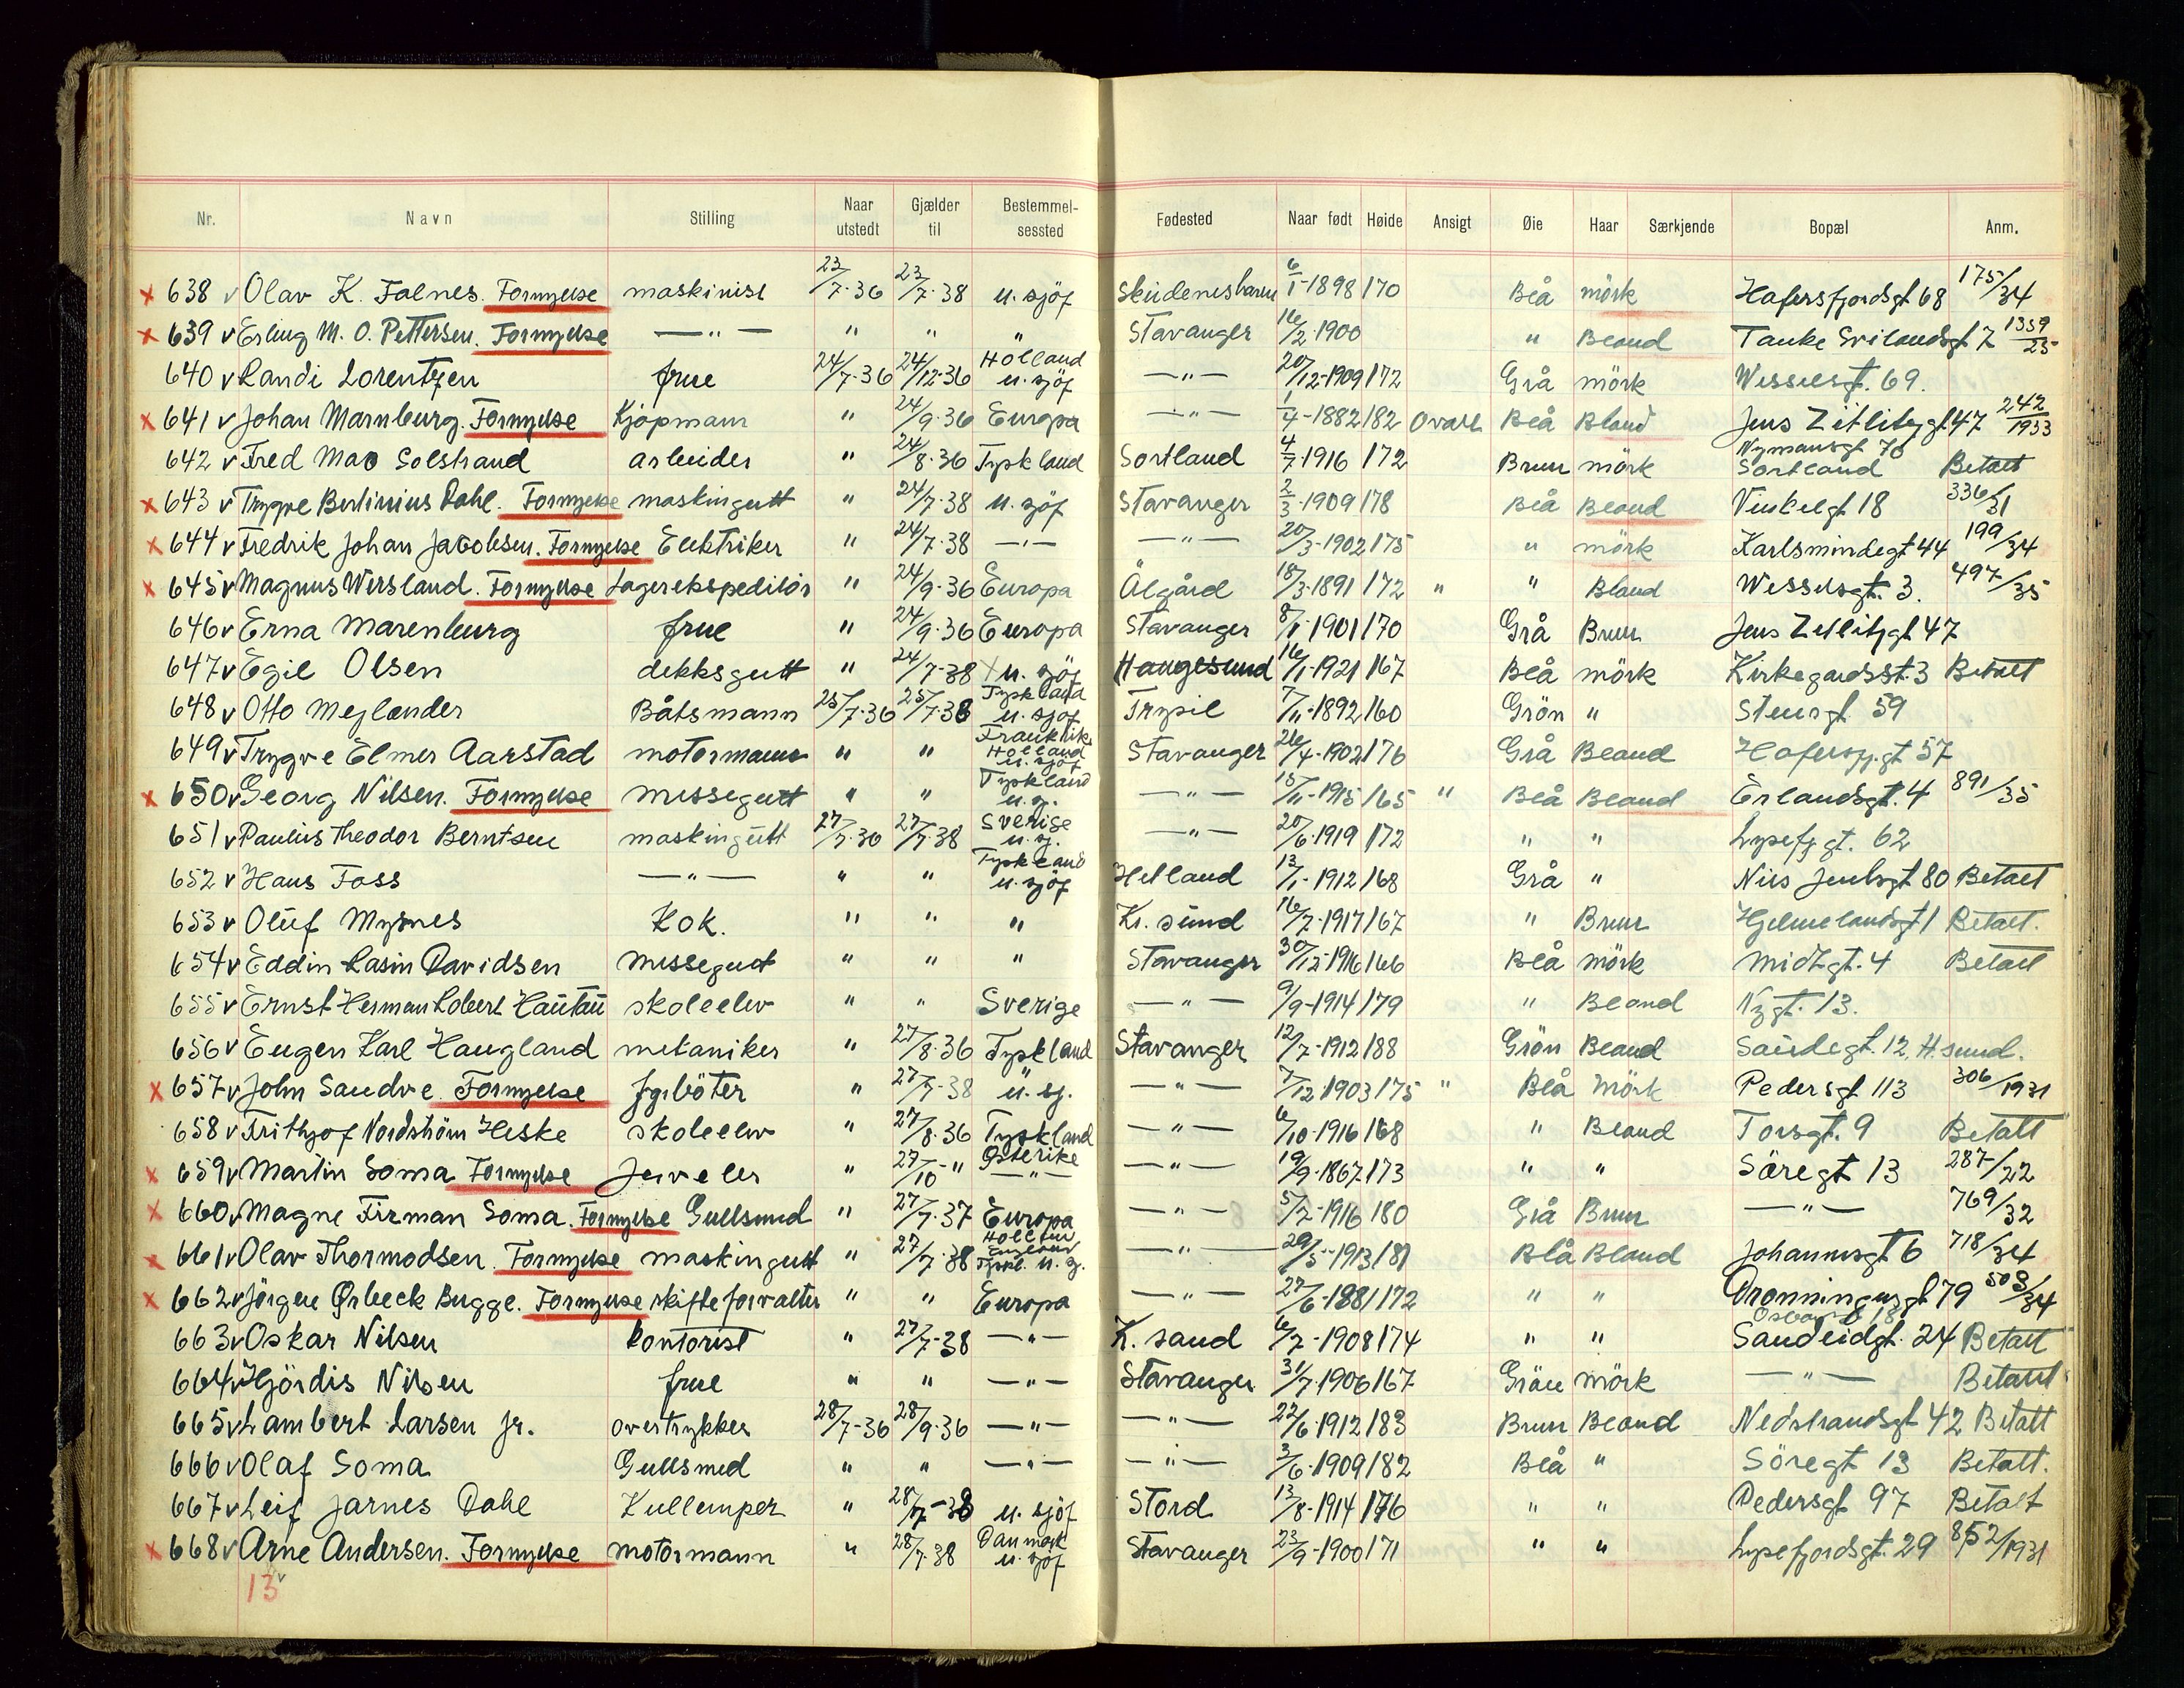 Nr. Navn Stilling Naar utstedt Gjælder til Bestemmelsessted Fødested Naar født Høide Ansigt Øie Haar Særkjende Bopæl Anm.
x 638 v Olav K. Falnes. Fornyelse maskinist 23/7-36 23/7-38 u. sjöf Skudeneshavn 6/1-1898 170 Blå mörk Hafersfjordsgt 68 175/34
x 639 v Erling M. O. Pettersen. Fornyelse —"— " " " Stavanger 16/2-1900 " Blond Tanke Svilandsgt 7 1359/25
640 v Randi Lorentzen frue 24/7-36 24/12-36 Holland u. sjöf —"— 20/12-1909 172 Grå mörk Wesselsgt. 69.
x 641 v Johan Marnburg. Fornyelse Kjöpmann " 24/9-36 Europa —"— 1/4-1882 182 Ovalt Blå Blond Jens Zetlitzgt 47 242/1933
642 v Fred Solstrand arbeider " 24/8-36 Tyskland Sortland 4/7-1916 172 Brun mörk Nymansgt 70 Sortland Betalt
x 643 v Trygve Dahl. Fornyelse maskingutt " 24/7-38 u. sjöf Stavanger 2/3-1909 178 Blå Blond Vinkelgt 18 336/31
x 644 v Fredrik Johan Jacobsen. Fornyelse Elektriker " 24/7-38 —"— —"— 20/3-1902 175 " mörk Karlsmindegt 44 199/34
x 645 v Magnus Wersland. Fornyelse Lagerekspeditör " 24/9-36 Europa Ålgård 18/3-1891 172 " " Blond Wesselsgt. 3. 497/35
646 v Erna Marenburg frue " 24/9-36 Europa Stavanger 8/1-1901 170 Grå Brun Jens Zetlitzgt 47
647 v Egil Olsen dekksgutt " 24/7-38 u. sjöf Haugesund 16/1-1921 167 Blå mörk Kirkegårdsst. 3 Betalt
648 v Otto Meylander Båtsmann 25/7-36 25/7-38 Tyskland u. sjöf Trysil 7/11-1892 160 Grön " Stensgt. 59
649 v Trygve Elmer Aarstad motormann " " Frankrik Holland u. sjöf Stavanger 26/4-1902 176 Grå Blond Hafersfj.gt 57
x 650 v Georg Nilsen. Fornyelse Messegutt " " Tyskland u. sj. —"— 15/11-1915 165 " Blå Blond Erlandsgt. 4 891/35
651 v Paulus Theodor Berntsen maskingutt 27/7-36 27/7-38 Sverige u. sj. —"— 20/6-1919 172 " " Lysefj.gt. 62
652 v Hans Foss —"— " " Tyskland u. sjöf Helland 13/1-1912 168 Grå " Nils Juelsgt 80 Betalt
653 v Oluf Mysnes Kok. " " " Kr. sund 16/7-1917 167 " Brun Hjelmelandsgt 1 Betalt.
654 v Eddin Rasin Davidsen Messegutt " " " Stavanger 30/12-1916 166 Blå mörk Midtgt. 4 Betalt
655 v Ernst Herman Robert Hautau skoleelev " " Sverige —"— 9/9-1914 179 " Blond Nygt. 13.
656 v Eugen Karl Haugland mekaniker " 27/8-36 Tyskland Stavanger 12/7-1912 188 Grön Blond 12, H.sund.
x 657 v John Sandve. Fornyelse fyrböter " 27/7-38 " u. sj. —"— 7/12-1903 175 " Blå Mörk Pedersgt 113 306/1931
658 v Frithjof Nordström Heske skoleelev " 27/8-36 Tyskland —"— 6/10-1916 168 " Blond Torsgt. 9 Betalt
x 659 v Martin Soma Fornyelse Juveler " 27/10-" Østerike —"— —"— 19/9-1867 173 " " Söregt 13 287/22
x 660 v Magne Firman Soma. Fornyelse Gullsmed " 27/7-37 Europa —"— 5/2-1916 180 Grå Brun —"— 769/32
x 661 v Olav Thormodsen. Fornyelse maskingutt " 27/7-38 Holland England Tyskl. u. sj. —"— 29/5-1913 181 Blå Blond Johannesgt 6 718/34
x 662 v Jörgen Ørbeck Bugge. Fornyelse skifteforvalter " " Europa —"— 27/6-1881 172 " " Dronningensgt 79 508/34
663 v Oskar Nilsen Kontorist " 27/7-38 —"— K. sand 6/7-1908 174 " " Sandeidgt. 24 Betalt
664 v Hjördis Nilsen frue " " —"— Stavanger 31/7-1906 167 Grön mörk —"— Betalt
665 v Lambert Larsen jr. overtrykker 28/7-36 28/9-36 —"— —"— 22/6-1912 183 Brun Blond Nedstrandsgt 42 Betalt
666 v Olaf Soma Gullsmed " " —"— —"— 3/6-1909 182 Blå " Söregt 13 Betalt.
667 v Leif Jarnes Dahl Kullemper " 28/7-38 u. sjöf Stord 13/8-1914 176 " " Pedersgt 97 Betalt
x 668 v Arne Andersen. Fornyelse motormann " 28/7-38 Danmark u. sjöf Stavanger 23/9-1900 171 " " Lysefjordsgt. 29 852/1931
13